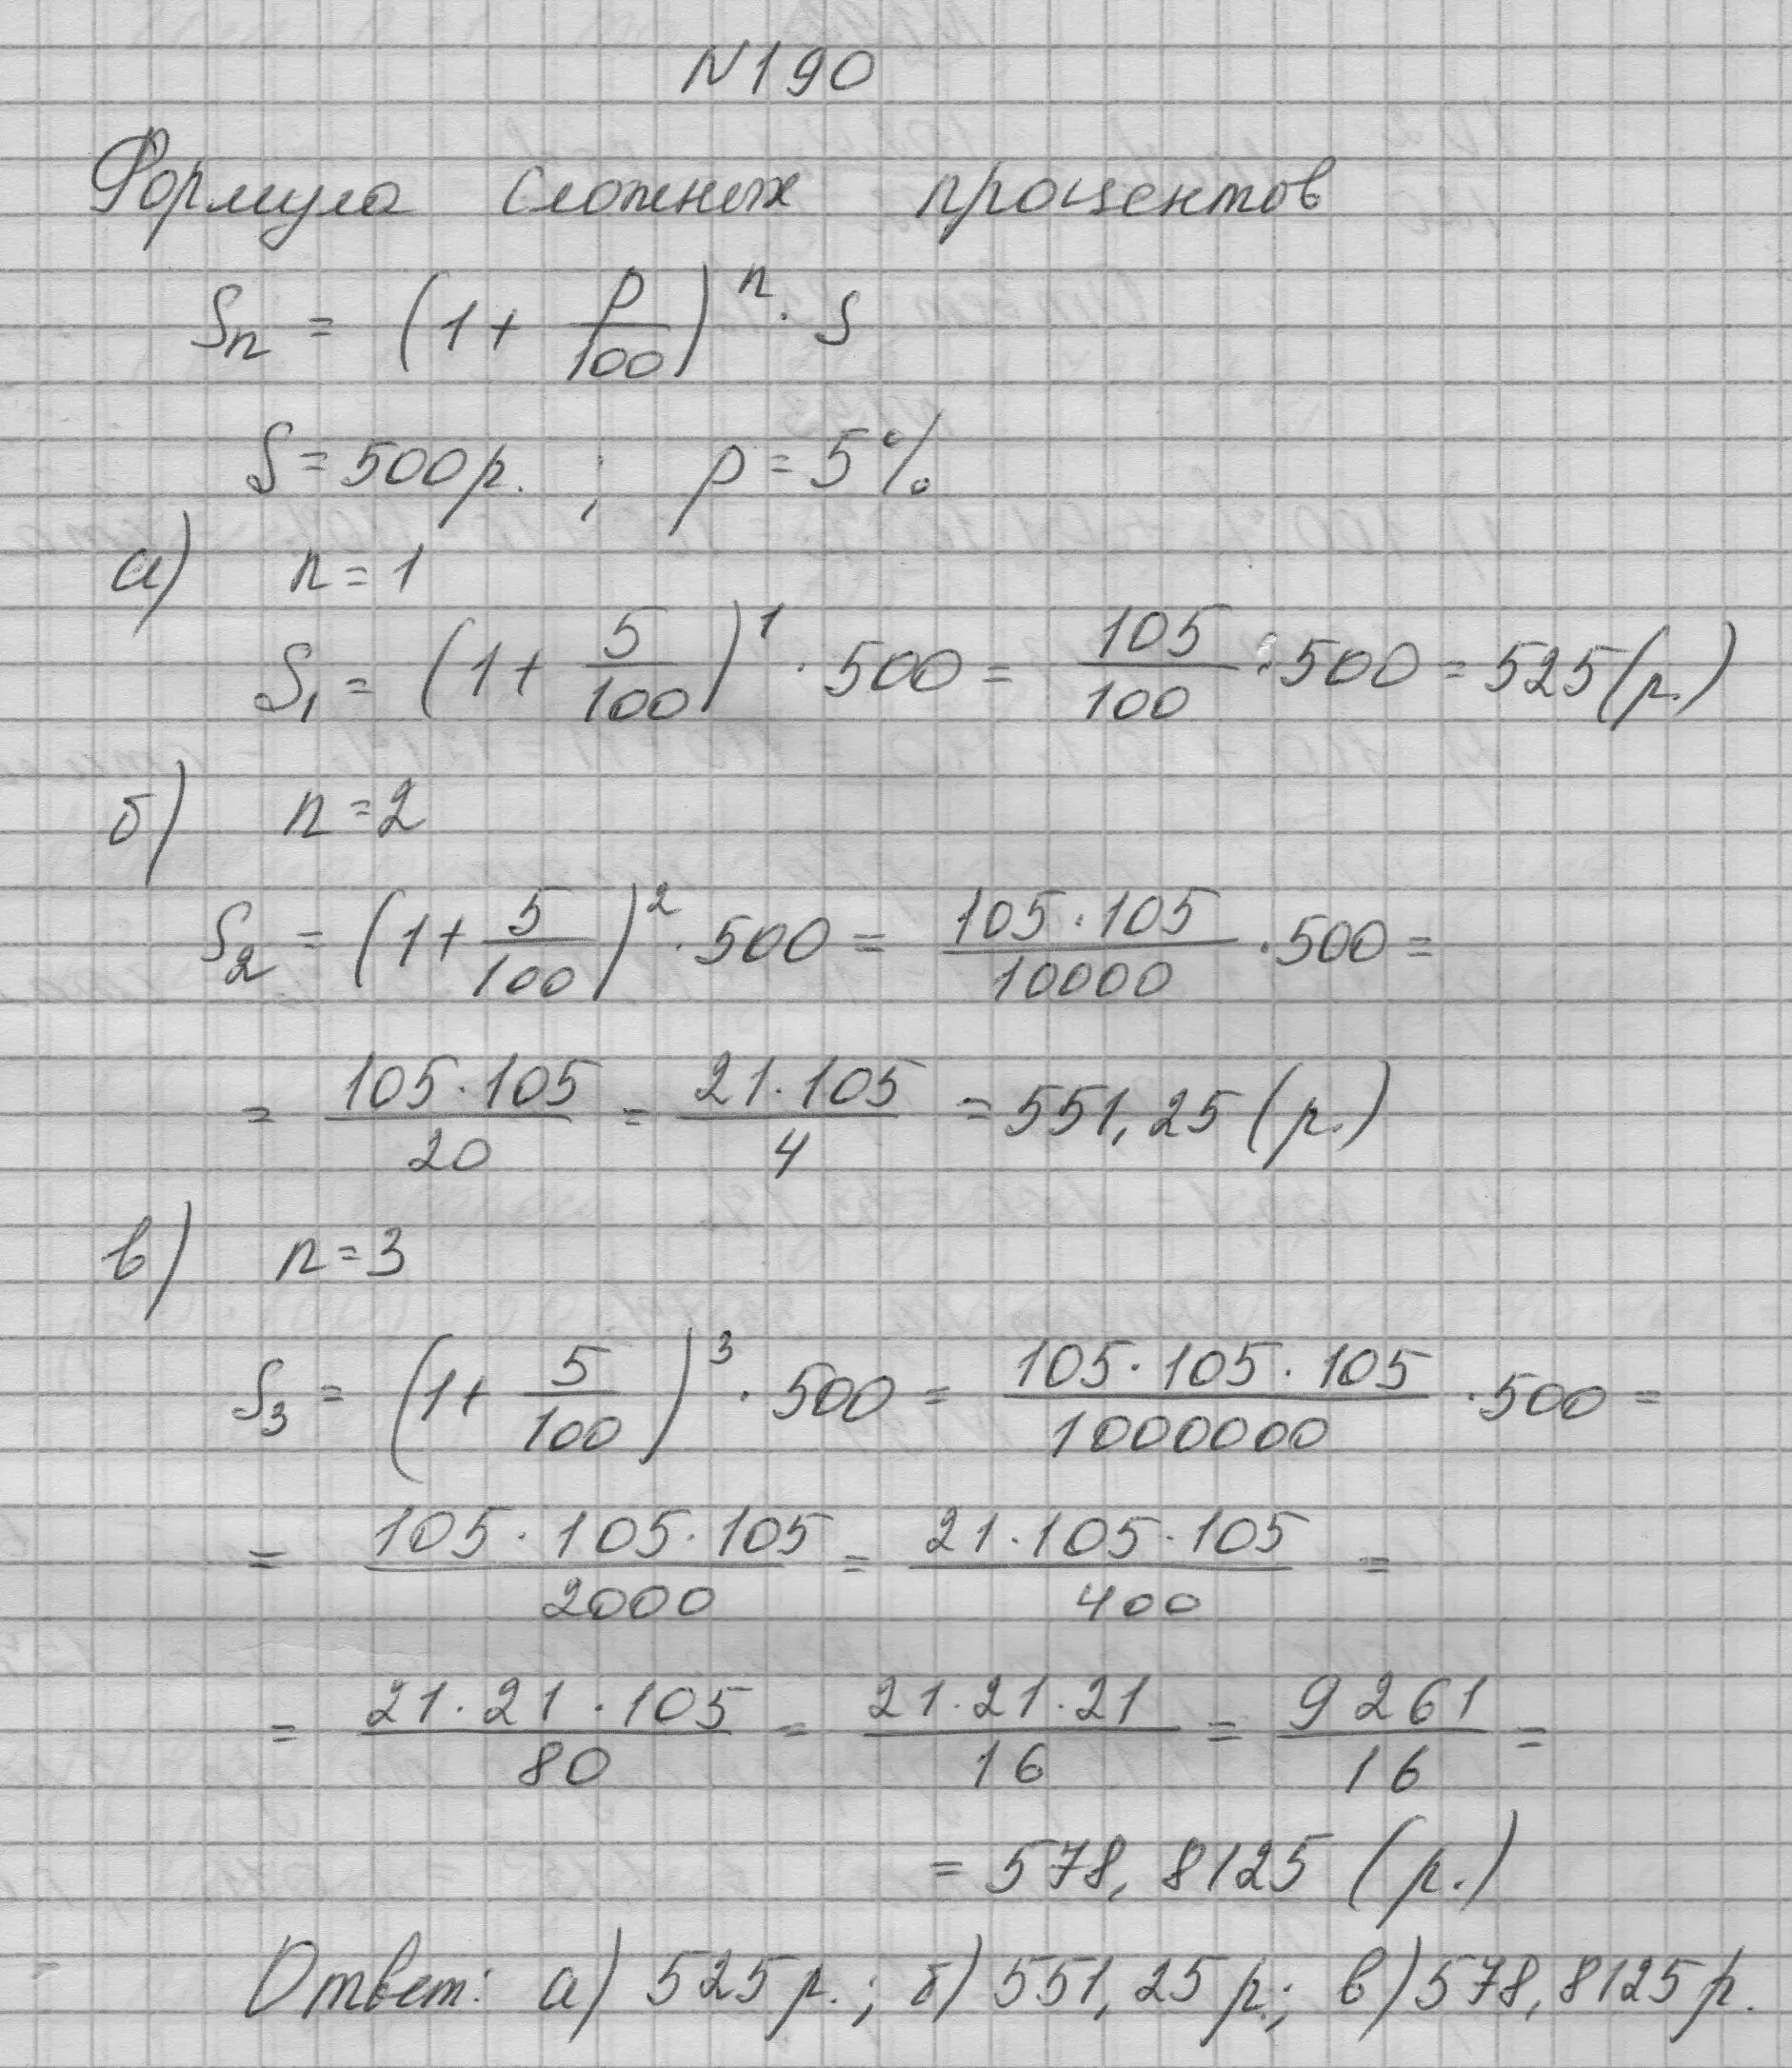 N190
Формула сложных процентов
Sn = (1 + p/100)^n · S
S = 500 р. ; p = 5%
а) n = 1
S₁ = (1 + 5/100)^1 · 500 = 105/100 · 500 = 525 (р.)
б) n = 2
S₂ = (1 + 5/100)^2 · 500 = 105 · 105/10000 · 500 =
= 105 · 105/20 = 21 · 105/4 = 551,25 (р.)
в) n = 3
S₃ = (1 + 5/100)^3 · 500 = 105 · 105 · 105/1000000 · 500 =
= 105 · 105 · 105/2000 = 21 · 105 · 105/400 =
= 21 · 21 · 105/80 = 21 · 21 · 21/16 = 9261/16 =
= 578,8125 (р.)
Ответ: а) 525 р.; б) 551,25 р.; в) 578,8125 р.